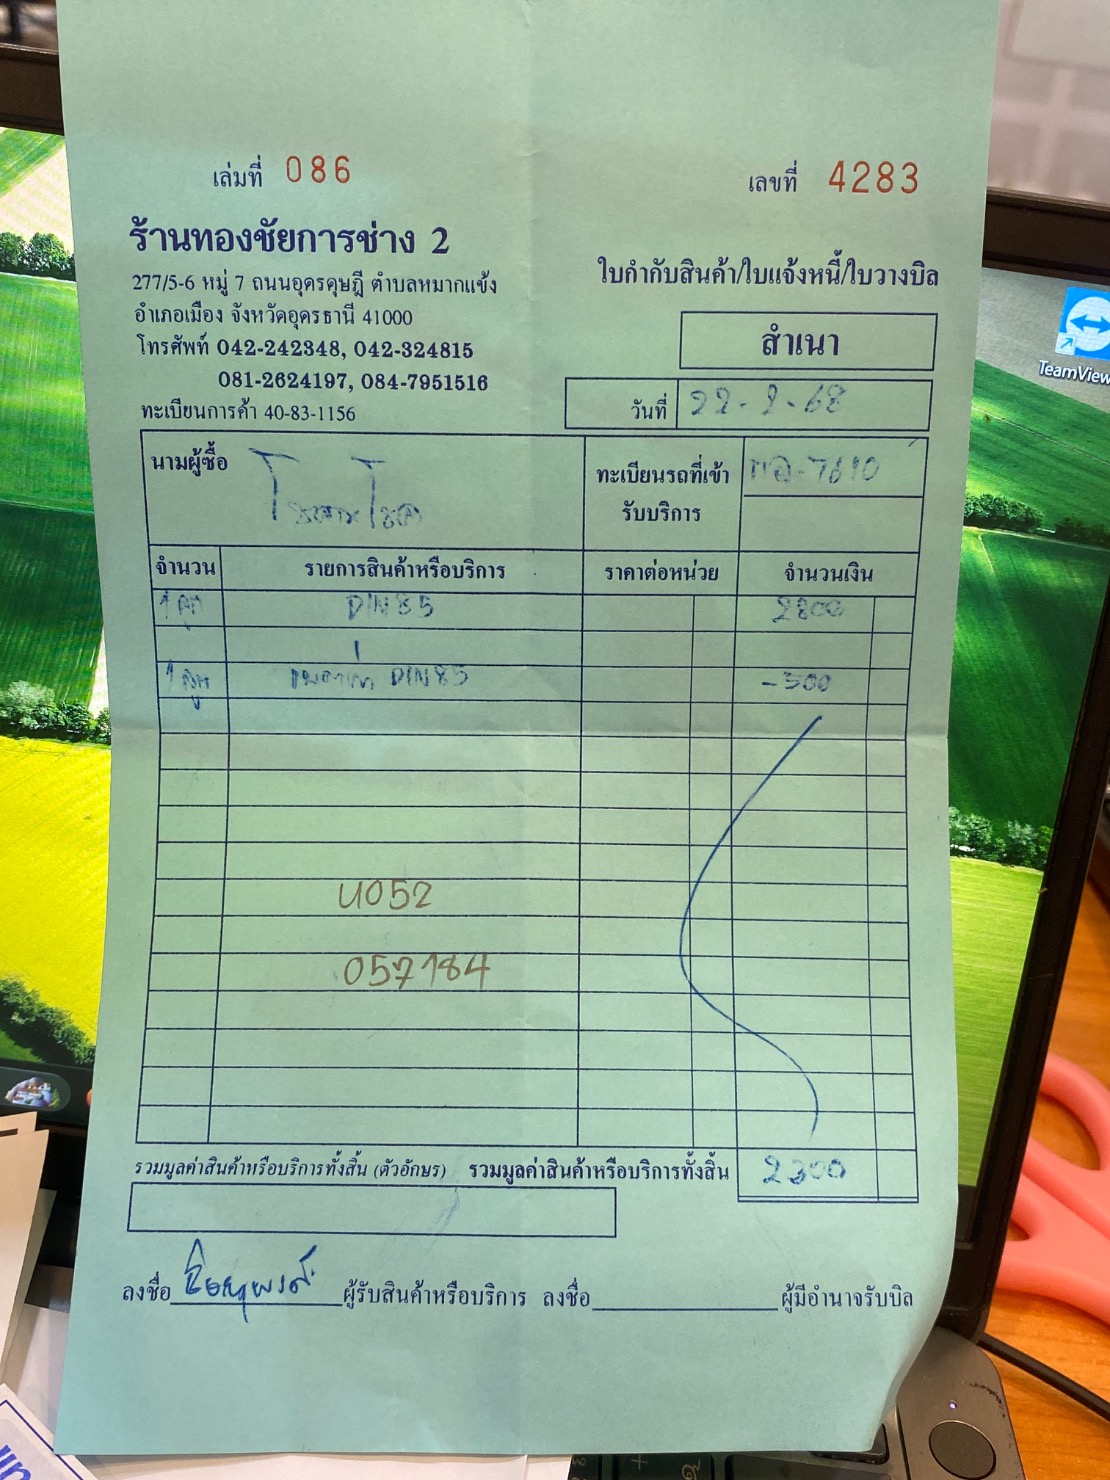 เล่มที่ 086
เลขที่ 4283
ร้านทองชัยการช่าง 2
277/5-6 หมู่ 7 ถนนอุดรดุษฎี ตำบลหมากแข้ง
อำเภอเมือง จังหวัดอุดรธานี 41000
โทรศัพท์ 042-242348, 042-324815
081-2624197, 084-7951516
ทะเบียนการค้า 40-83-1156
ใบกำกับสินค้า/ใบแจ้งหนี้/ใบวางบิล
สำเนา
วันที่ 22-2-68
นามผู้ซื้อ
ทะเบียนรถที่เข้ารับบริการ
จำนวน รายการสินค้าหรือบริการ ราคาต่อหน่วย จำนวนเงิน
1 ลูก DIN85 2800
1 ลูก DIN85 -500
U052
057184
รวมมูลค่าสินค้าหรือบริการทั้งสิ้น (ตัวอักษร) รวมมูลค่าสินค้าหรือบริการทั้งสิ้น 2300
ลงชื่อ ผู้รับสินค้าหรือบริการ ลงชื่อ ผู้มีอำนาจรับบิล
TeamView